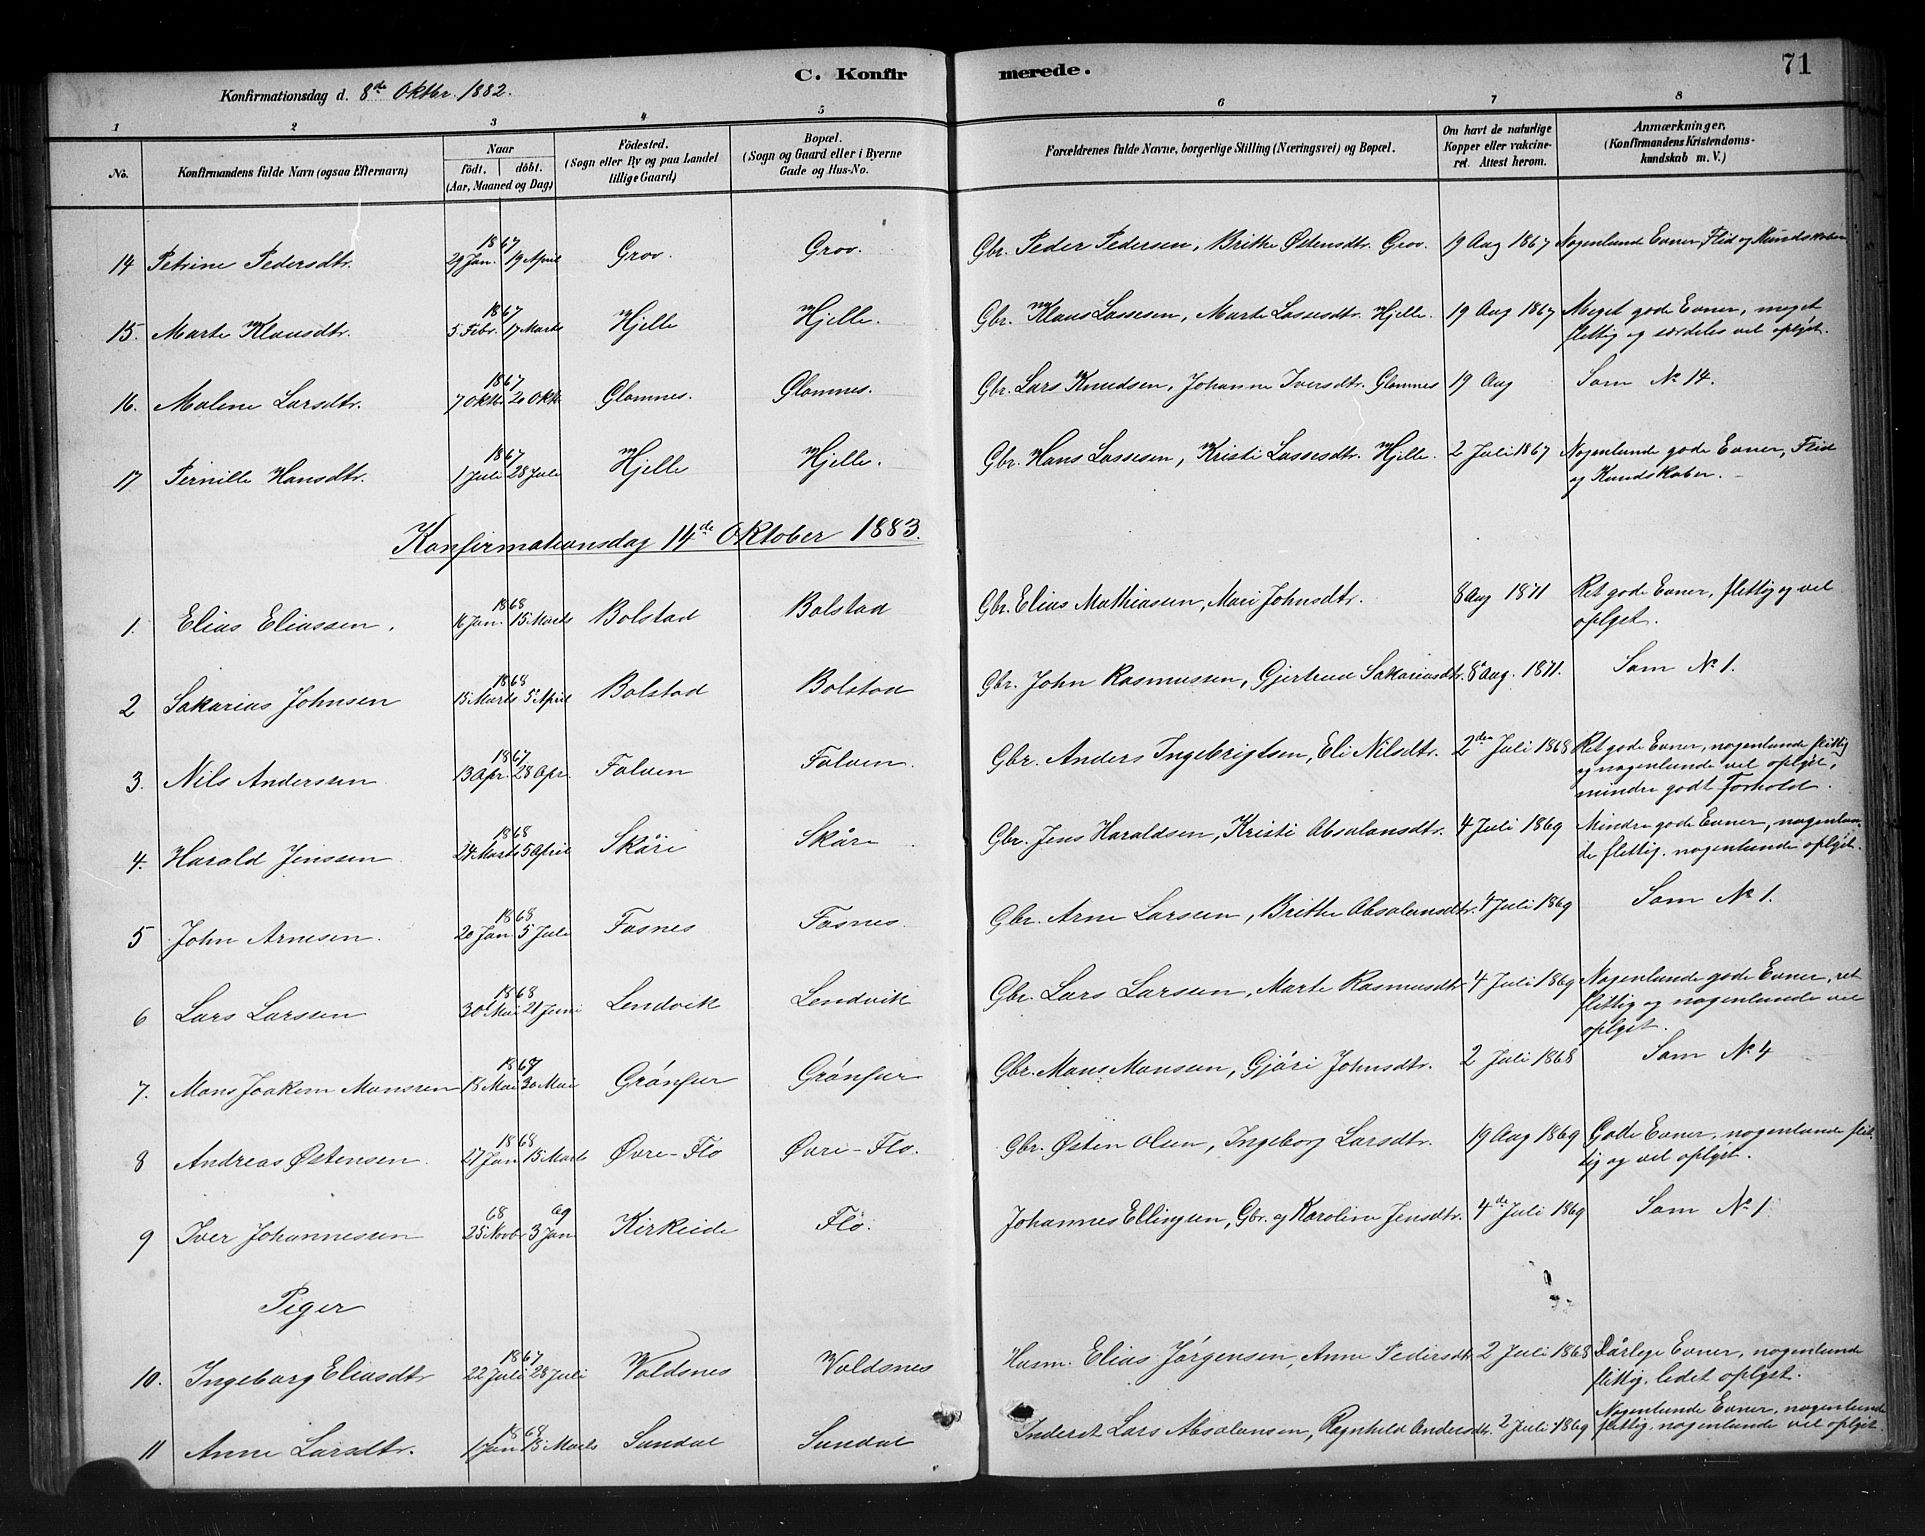 C. Konfirmerede. 71
Konfirmationsdag d. 8de Oktbr. 1882.
1 2 3 4 5 6 7 8
No. Konfirmandens fulde Navn (ogsaa Efternavn) Naar født. døbt. (Aar, Maaned og Dag) Födested. (Sogn eller By og paa Landet tillige Gaard) Bopæl. (Sogn og Gaard eller i Byerne Gade og Hus-No. Forældrenes fulde Navne, borgerlige Stilling (Næringsvei) og Bopæl. Om havt de naturlige Kopper eller vakcineret. Attest herom. Anmærkninger. (Konfirmandens Kristendomskundskab m. V.)
14 Petrine Pedersdtr. 1867 29 Jan. 19 April Grov. Grov. Gbr. Peder Pedersen, Brithe Østensdtr. Grov. 19 Aug 1867 Nogenlund Evner, Flid og Kundskaber
15. Marte Klausdtr. 1867 5 Febr. 17 Marts Hjelle Hjelle. Gbr. Klaus Lassesen, Marte Lassesdtr. Hjelle. 19 Aug 1867 Meget gode Evner, meget
flittig og særdeles vel oplyst.
16. Malene Larsdtr. 1867 7 Oktr 20 Okt. Glomnes. Glomnes. Gbr. Lars Knudsen, Johanne Iversdtr. Glomnes 19 Aug Som No 14.
17 Pernille Hansdtr. 1867 1 Juli 28 Juli Hjelle Hjelle. Gbr. Hans Lassesen, Kristi Lassesdtr. Hjelle. 2 Juli 1867 Nogenlunde gode Evner, Flid
og Kundskaber.
Konfirmationsdag 14de Oktober 1883.
1. Elias Eliassen. 1868 16 Jan. 15 Marts Bolstad Bolstad Gbr. Elias Mathiasen, Mari Johnsdtr. 8 Aug 1871 Ret gode Evner, flittig og vel
oplyst.
2 Sakarias Johnsen 1868 15 Marts 5 April Bolstad Bolstad Gbr. John Rasmussen, Gjertrud Sakariasdtr. 8 Aug. 1871. Som No 1.
3. Nils Anderssen 1867 13 Apr. 28 Apr. Folven Folven. Gbr. Anders Ingebrigtsen, Eli Nilsdtr. 2den Juli 1868 Ret gode Evner, nogenlunde flittig
og nogenlunde vel oplyst,
mindre godt Forhold.
4. Harald Jenssen 1868 24 Marts 5 April Skåre Skåre. Gbr. Jens Haraldsen, Kristi Absalonsdtr. 4 Juli 1869 Mindre gode Evner, nogenlun-
de flittig. nogenlunde oplyst.
5 John Arnesen. 1868 20 Jan. 5 Juli Fosnes Fosnes. Gbr. Arne Larsen, Brithe Absalonsdtr. 4 Juli 1869 Som No 1.
6 Lars Larsen 1868 30 Mai 21 Juni Lendvik Lendvik Gbr. Lars Larsen, Marte Rasmusdtr 4 Juli 1869 Nogenlunde gode Evner, ret
flittig og nogenlunde vel
oplyst.
7. Mons Joakim Monssen 1867 18 Mai 30 Mai Grónfur Grónfur Gbr. Mons Monsen, Gjóri Johnsdtr. 2 Juli 1868 Som No 4
8 Andreas Østensen. 1868 27 Jan 15 Marts Øvre-Flo Øvre-Flo. Gbr. Østen Olsen, Ingeborg Larsdtr. 19 Aug 1869 Gode Evner, nogenlunde flit-
tig og vel oplyst.
9 Iver Johannessen 68 25 Novbr 69 3 Jan Kirkeide Flo. Johannes Ellingsen, Gbr. og Karoline Jensdtr. 4de Juli 1869 Som No 1.
Piger
10. Ingeborg Eliasdtr 1867 22 Juli 28 Juli Voldsnes Voldsnes Husm. Elias Jørgensen, Anne Pedersdtr 2 Juli 1868 Dårlige Evner, nogenlunde
flittig, lidet oplyst.
11 Anne Larsdtr. 1868 1 Jan 15 Marts Sundal Sundal Inderst Lars Absalonsen, Ragnhild Andersdtr. 2 Juli 1869 Nogenlunde Evner, nogenlunde
flittig. nogenlunde vel oplyst